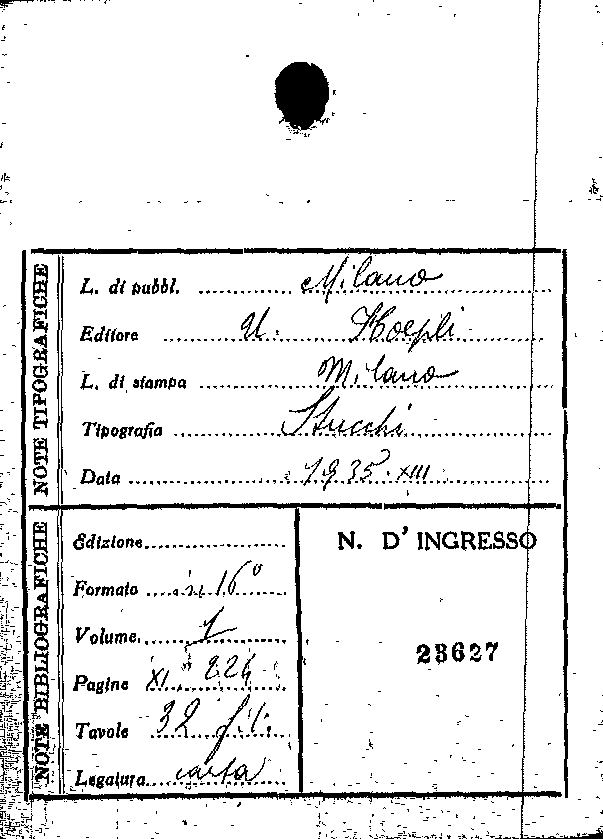 NOTE TIPOGRAFICHE
L. di pubbl. Milano
Editore U. Hoepli
L. di stampa Milano
Tipografia Stucchi
Data 1935. XIII
NOTE BIBLIOGRAFICHE
Edizione
Formato in 16°
Volume 1
Pagine XI 224
Tavole 32
Legatura carta
N. D' INGRESSO
23627